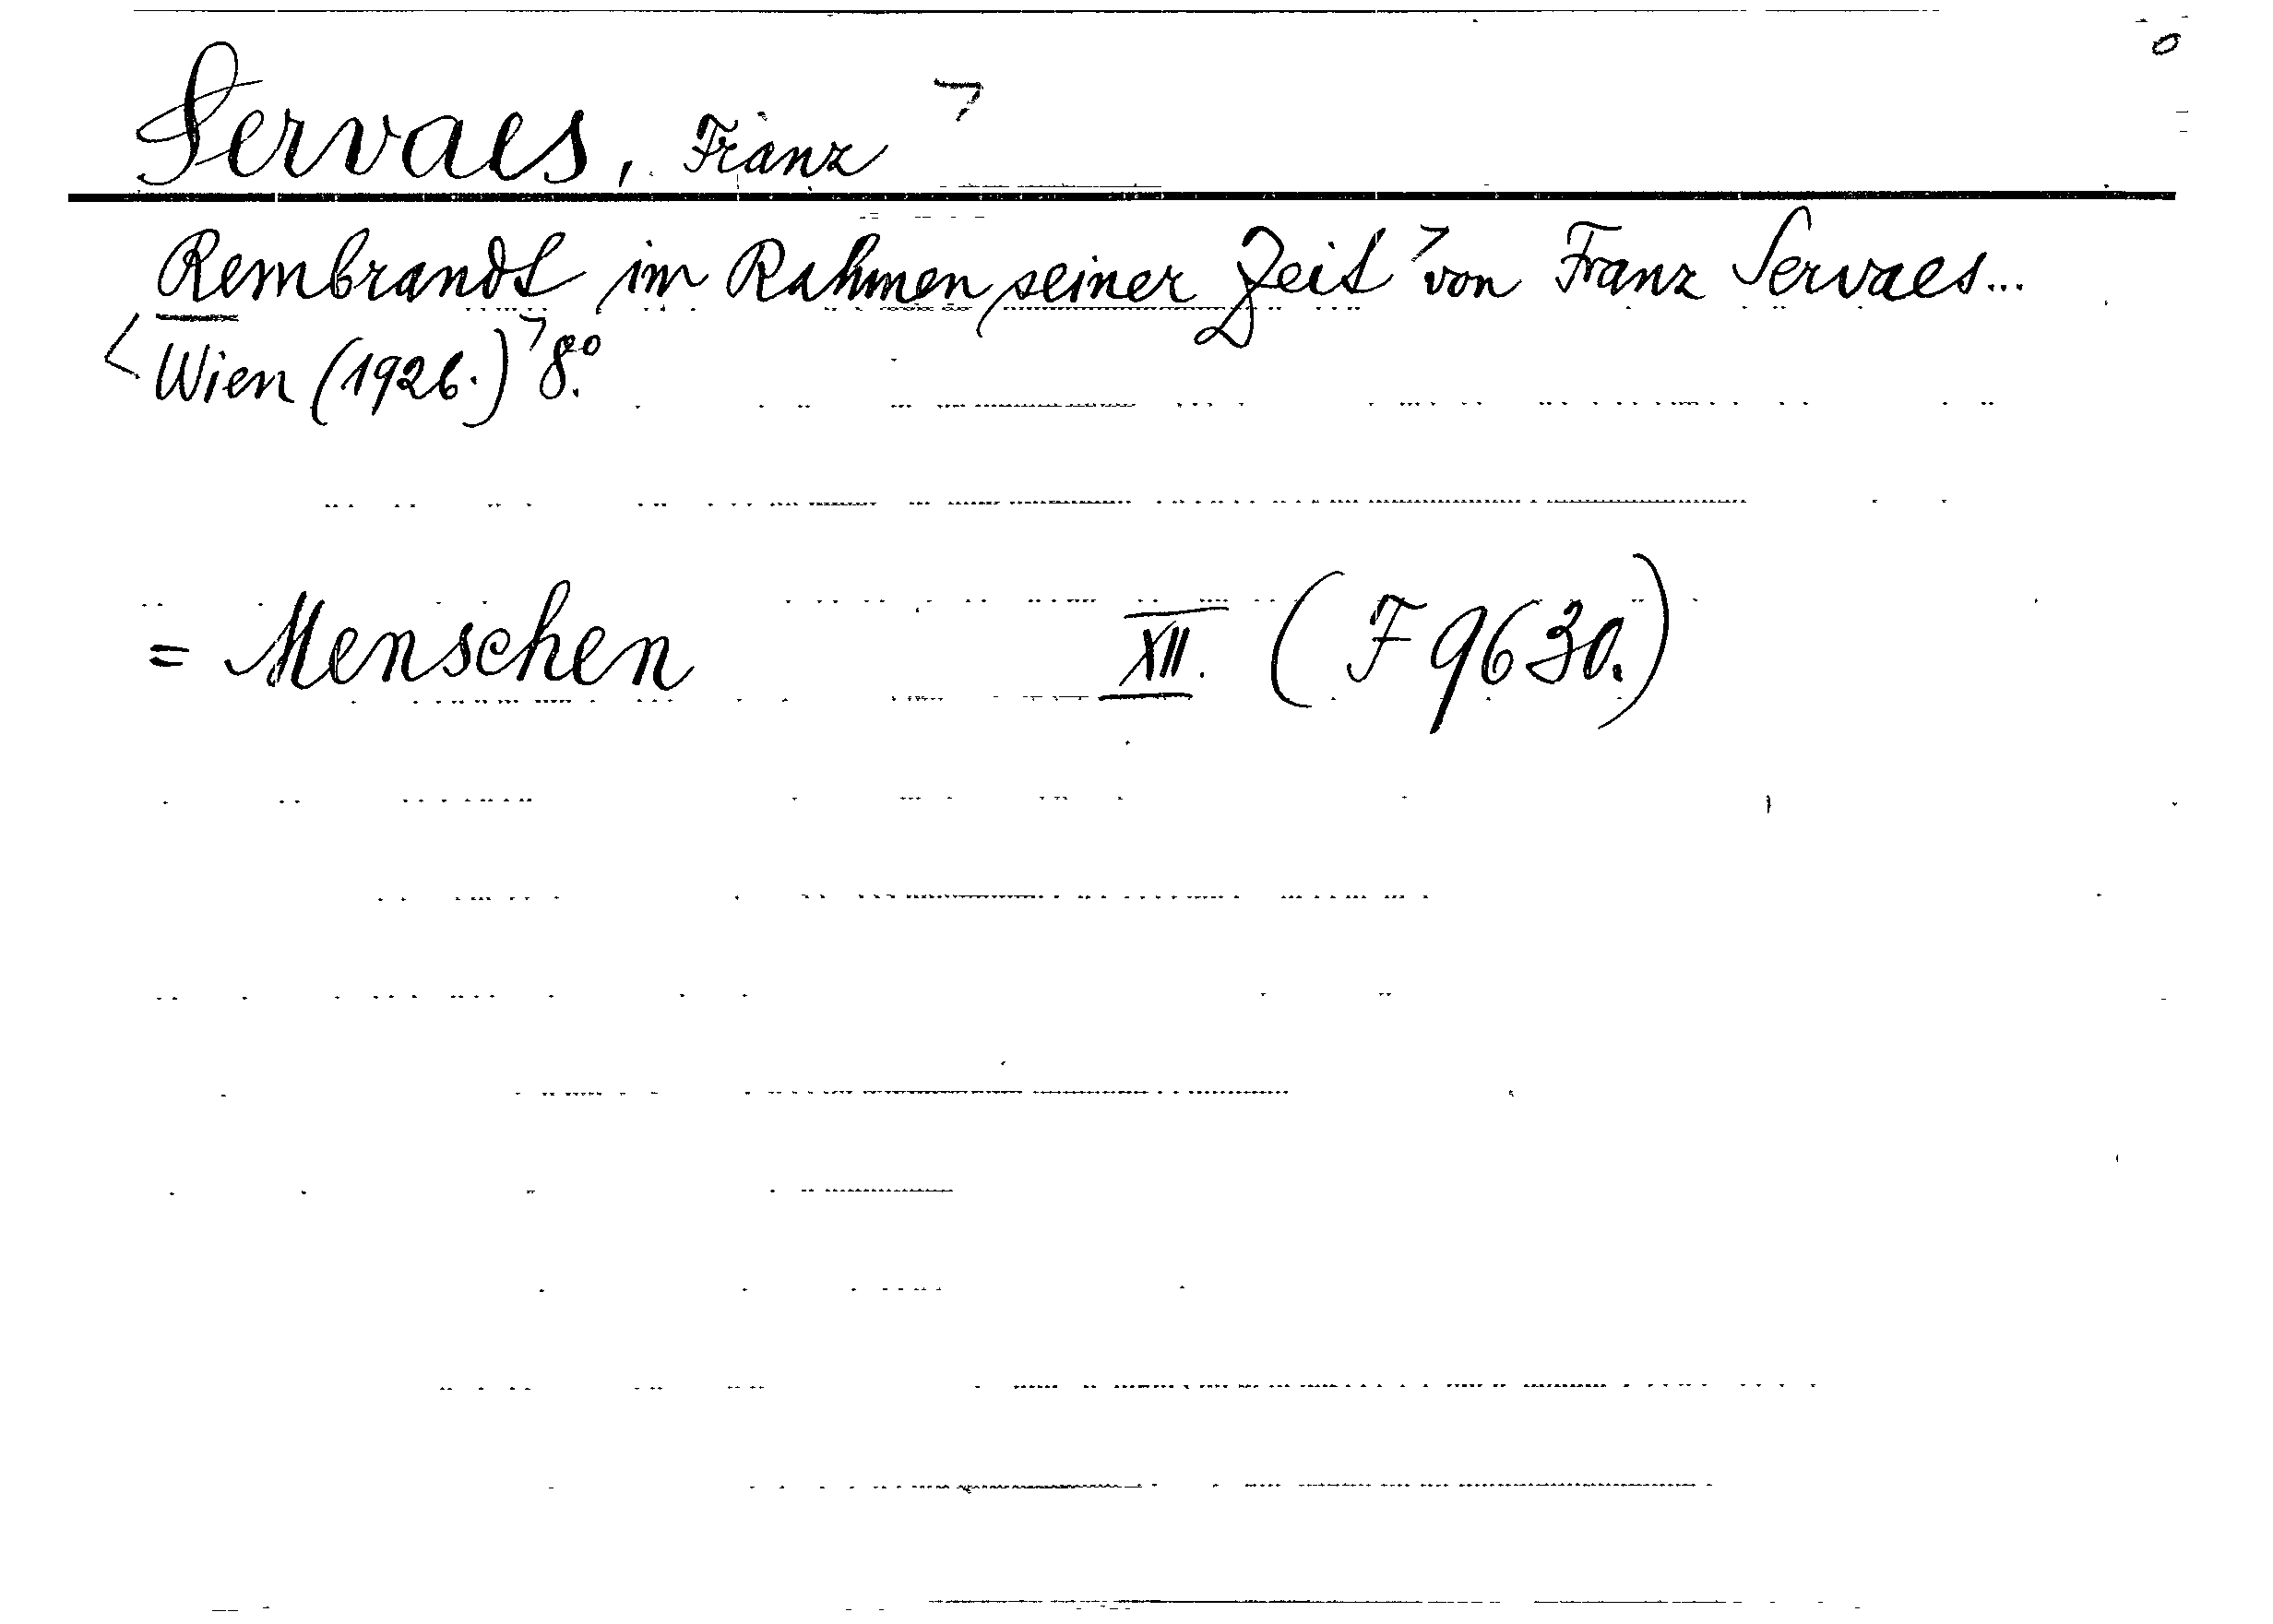 Servaes, Franz
Rembrandt im Rahmen seiner Zeit von Franz Servaes...
Wien (1926.) 8.°
= Menschen XII. (F 9630.)